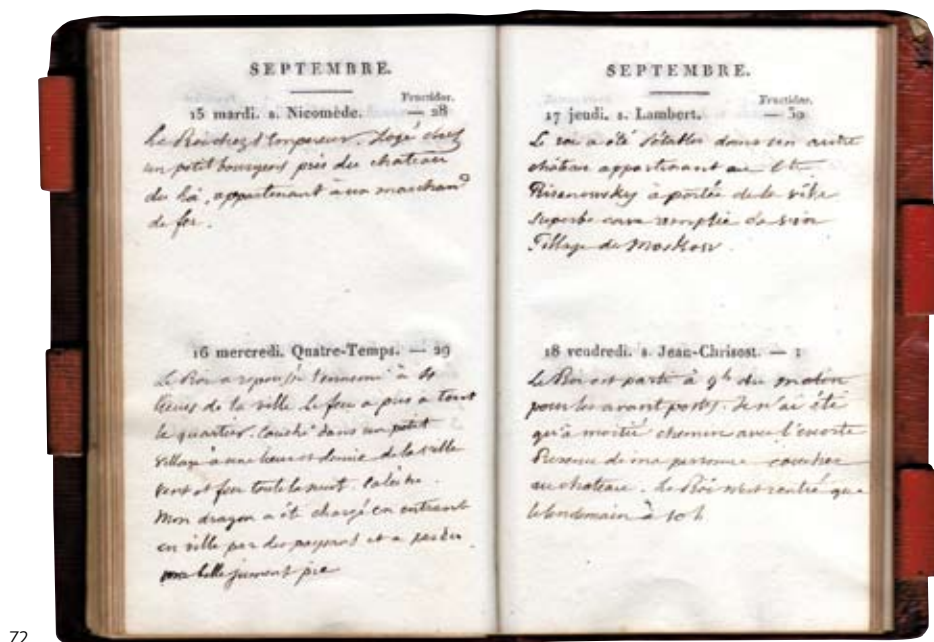 SEPTEMBRE.
Fructidor.
15 mardi. s. Nicomède. — 28
Le Roi chez l'Empereur. Logé chez
un petit bourgeois près du château
du Roi, appartenant à un marchand
de fer.
16 mercredi. Quatre-Temps. — 29
Le Roi a repoussé l'ennemi à
lieues de la ville Le feu a pris a tout
le quartier. Couché dans un petit
village à une lieue et demie de la ville
vent et feu toute la nuit.
Mon dragon a été chargé en entrant
en ville par des paysans et a perdu
ma belle jument pie
SEPTEMBRE.
Fructidor.
17 jeudi. s. Lambert. — 30
Le roi a été s'établir dans un autre
château appartenant au Cte
à portée de la ville
Superbe cave remplie de vin
Pillage de Moskow.
18 vendredi. s. Jean-Chrisost. — 1
Le Roi est parti à 9h du matin
pour les avant postes. Je n'ai été
qu'à moitié chemin avec l'escorte
Revenu de ma personne coucher
au chateau. Le Roi n'est rentré que
le lendemain à 10 h
72